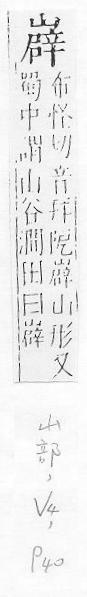 布怪切音拜山形又
蜀中謂山谷澗田曰
山部，V4，P40